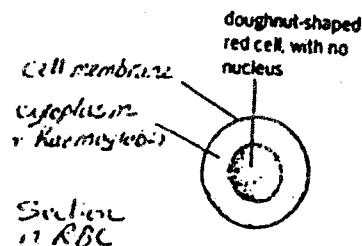 doughnut-shaped
red cell, with no
nucleus
cell membrane
cytoplasm
+ Haemoglobin
Section